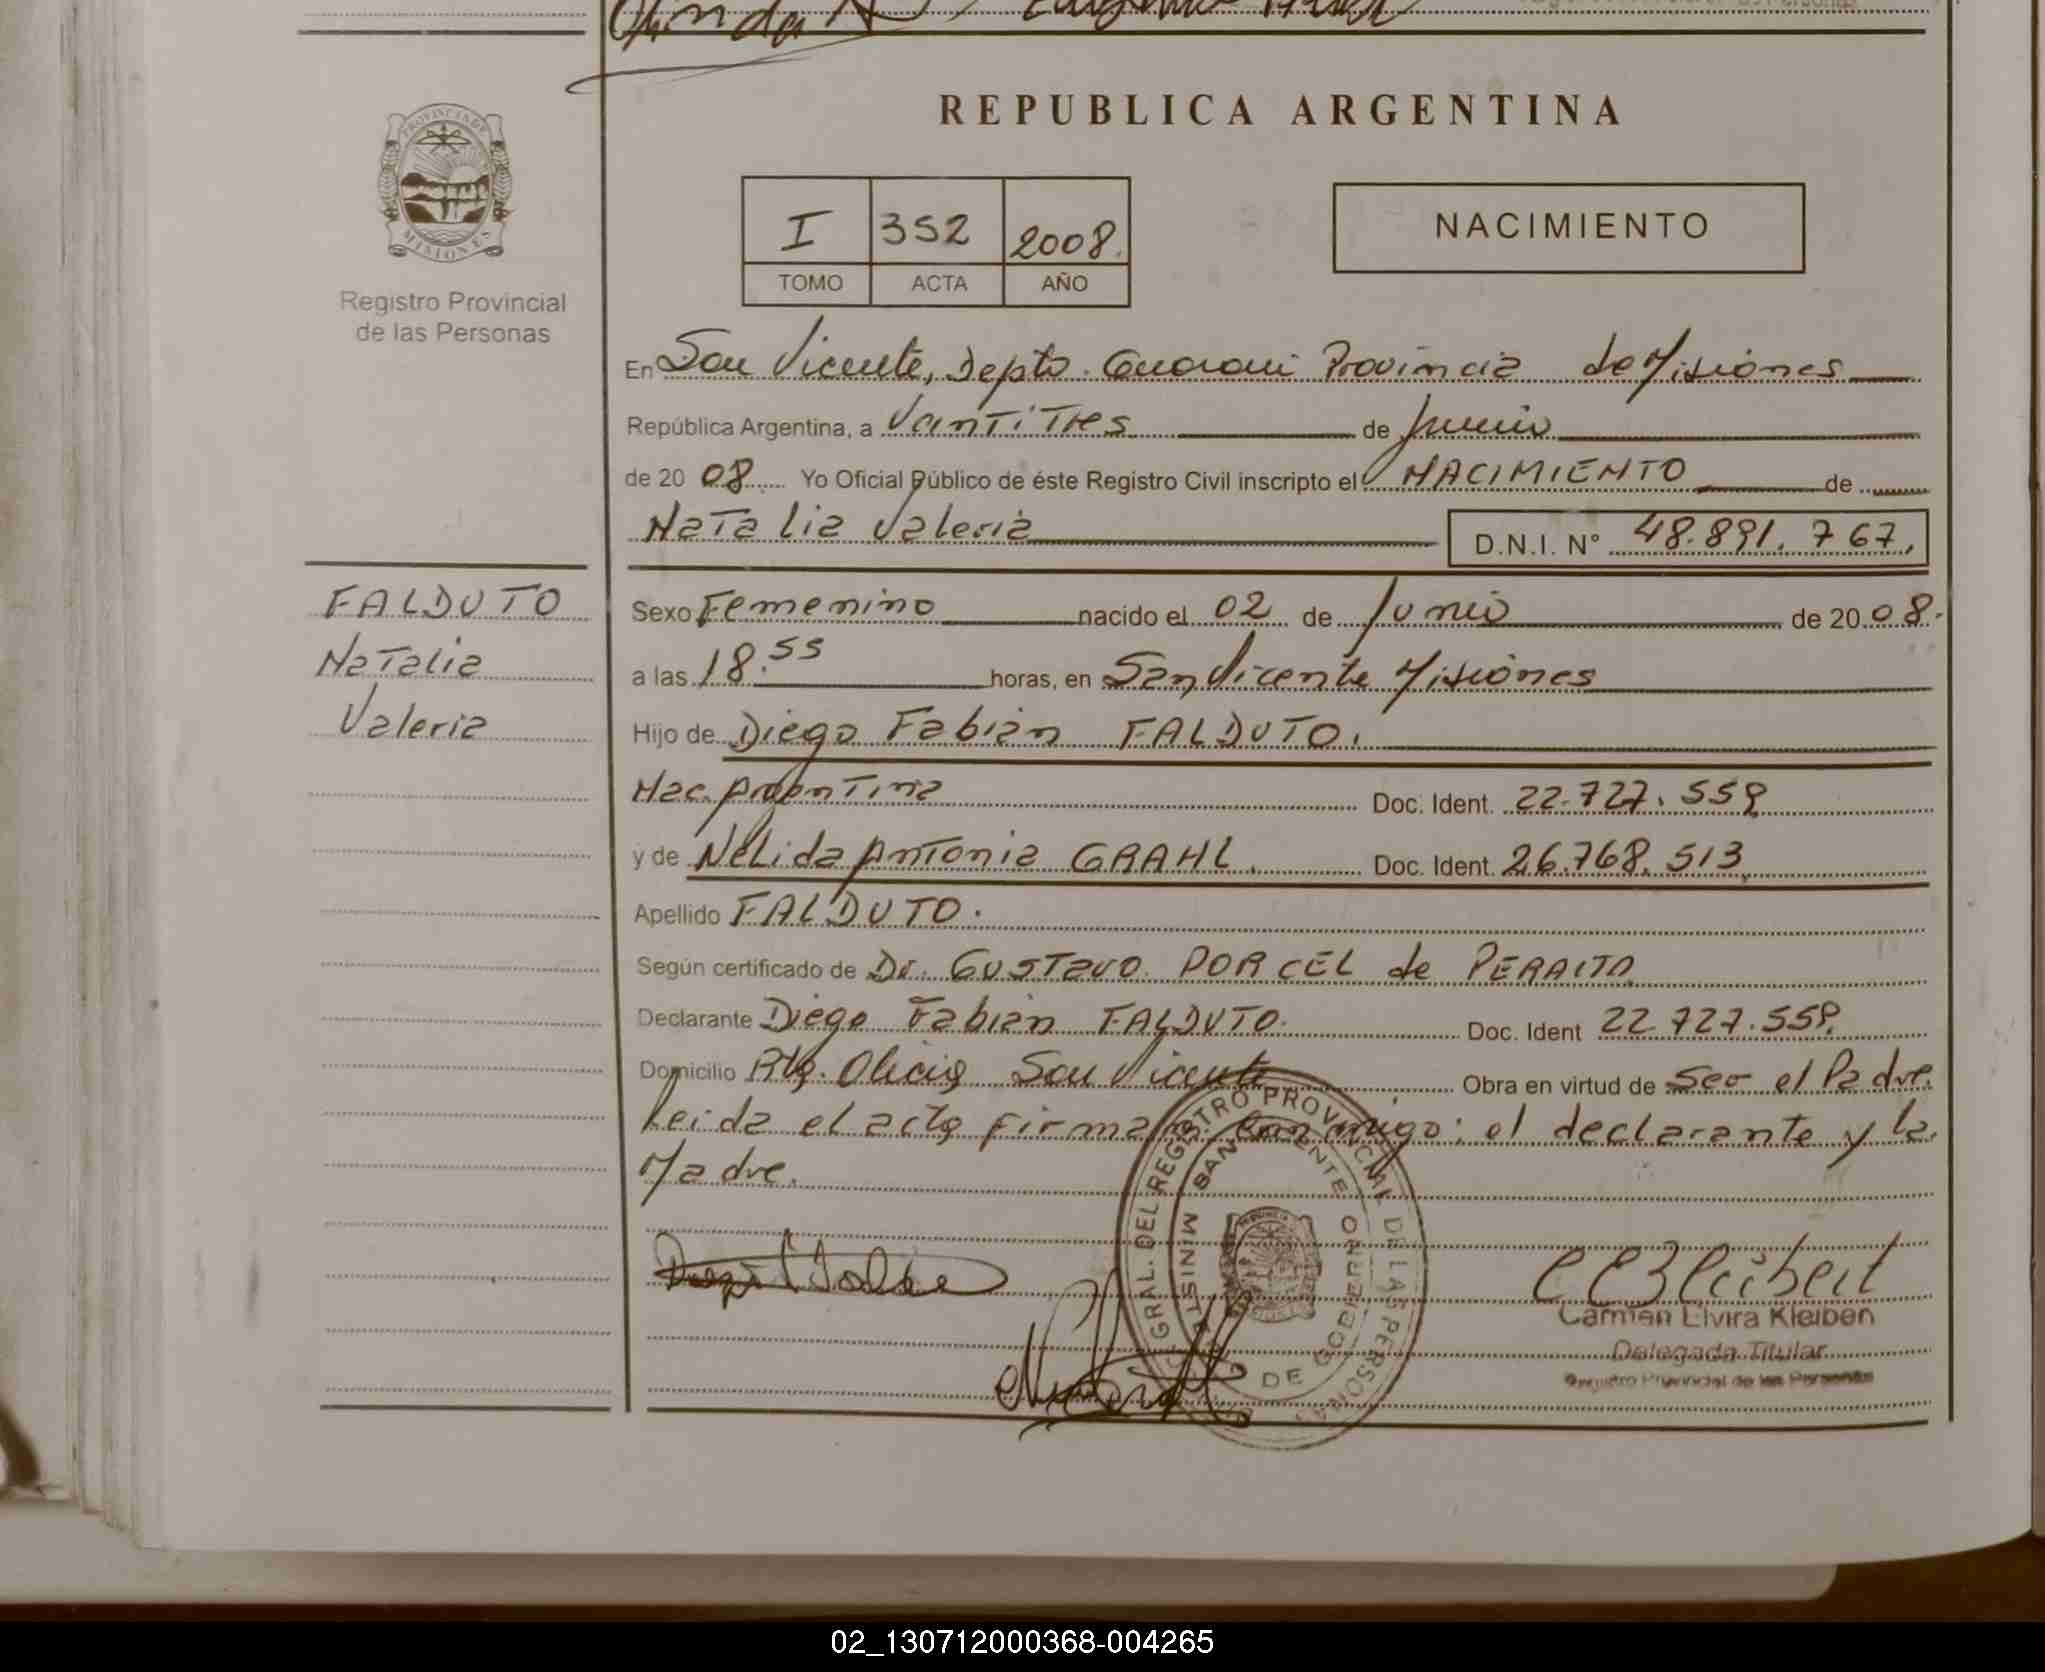 REPUBLICA ARGENTINA
PROVINCIA DE
MISIONES
Registro Provincial
de las Personas
I 352 2008.
TOMO ACTA AÑO
NACIMIENTO
En San Vicente, Depto. Guarani Provincia de Misiones
República Argentina, a VainTiTres de Junio
de 2008 Yo Oficial Público de éste Registro Civil inscripto el NACIMIENTO de
NaTalia Valeria D.N.I. N° 48.891.767.
FALDUTO
NaTalia
Valeria
Sexo Femenino nacido el 02 de Junio de 2008.
a las 18.55 horas, en San Vicente Misiones
Hijo de Diego Fabián FALDUTO.
Nac. ArgenTina Doc. Ident. 22.727.559
y de Nélida Antonia GRAHL. Doc. Ident. 26.768.513
Apellido FALDUTO.
Según certificado de Dr. GUSTavo PORCEL de PERALTA
Declarante Diego Fabián FALDUTO. Doc. Ident 22.727.559.
Domicilio Rta. Olicia San Vicente Obra en virtud de Ser el Padre.
Leida el acta firman conmigo: el declarante y la
Madre.
GRAL. DEL REGISTRO PROVINCIAL DE LAS PERSONAS
SAN VICENTE
MINISTE DE GOBIERNO
Carmen Elvira Kleiben
Delegada Titular
Registro Provincial de las Personas
02_130712000368-004265